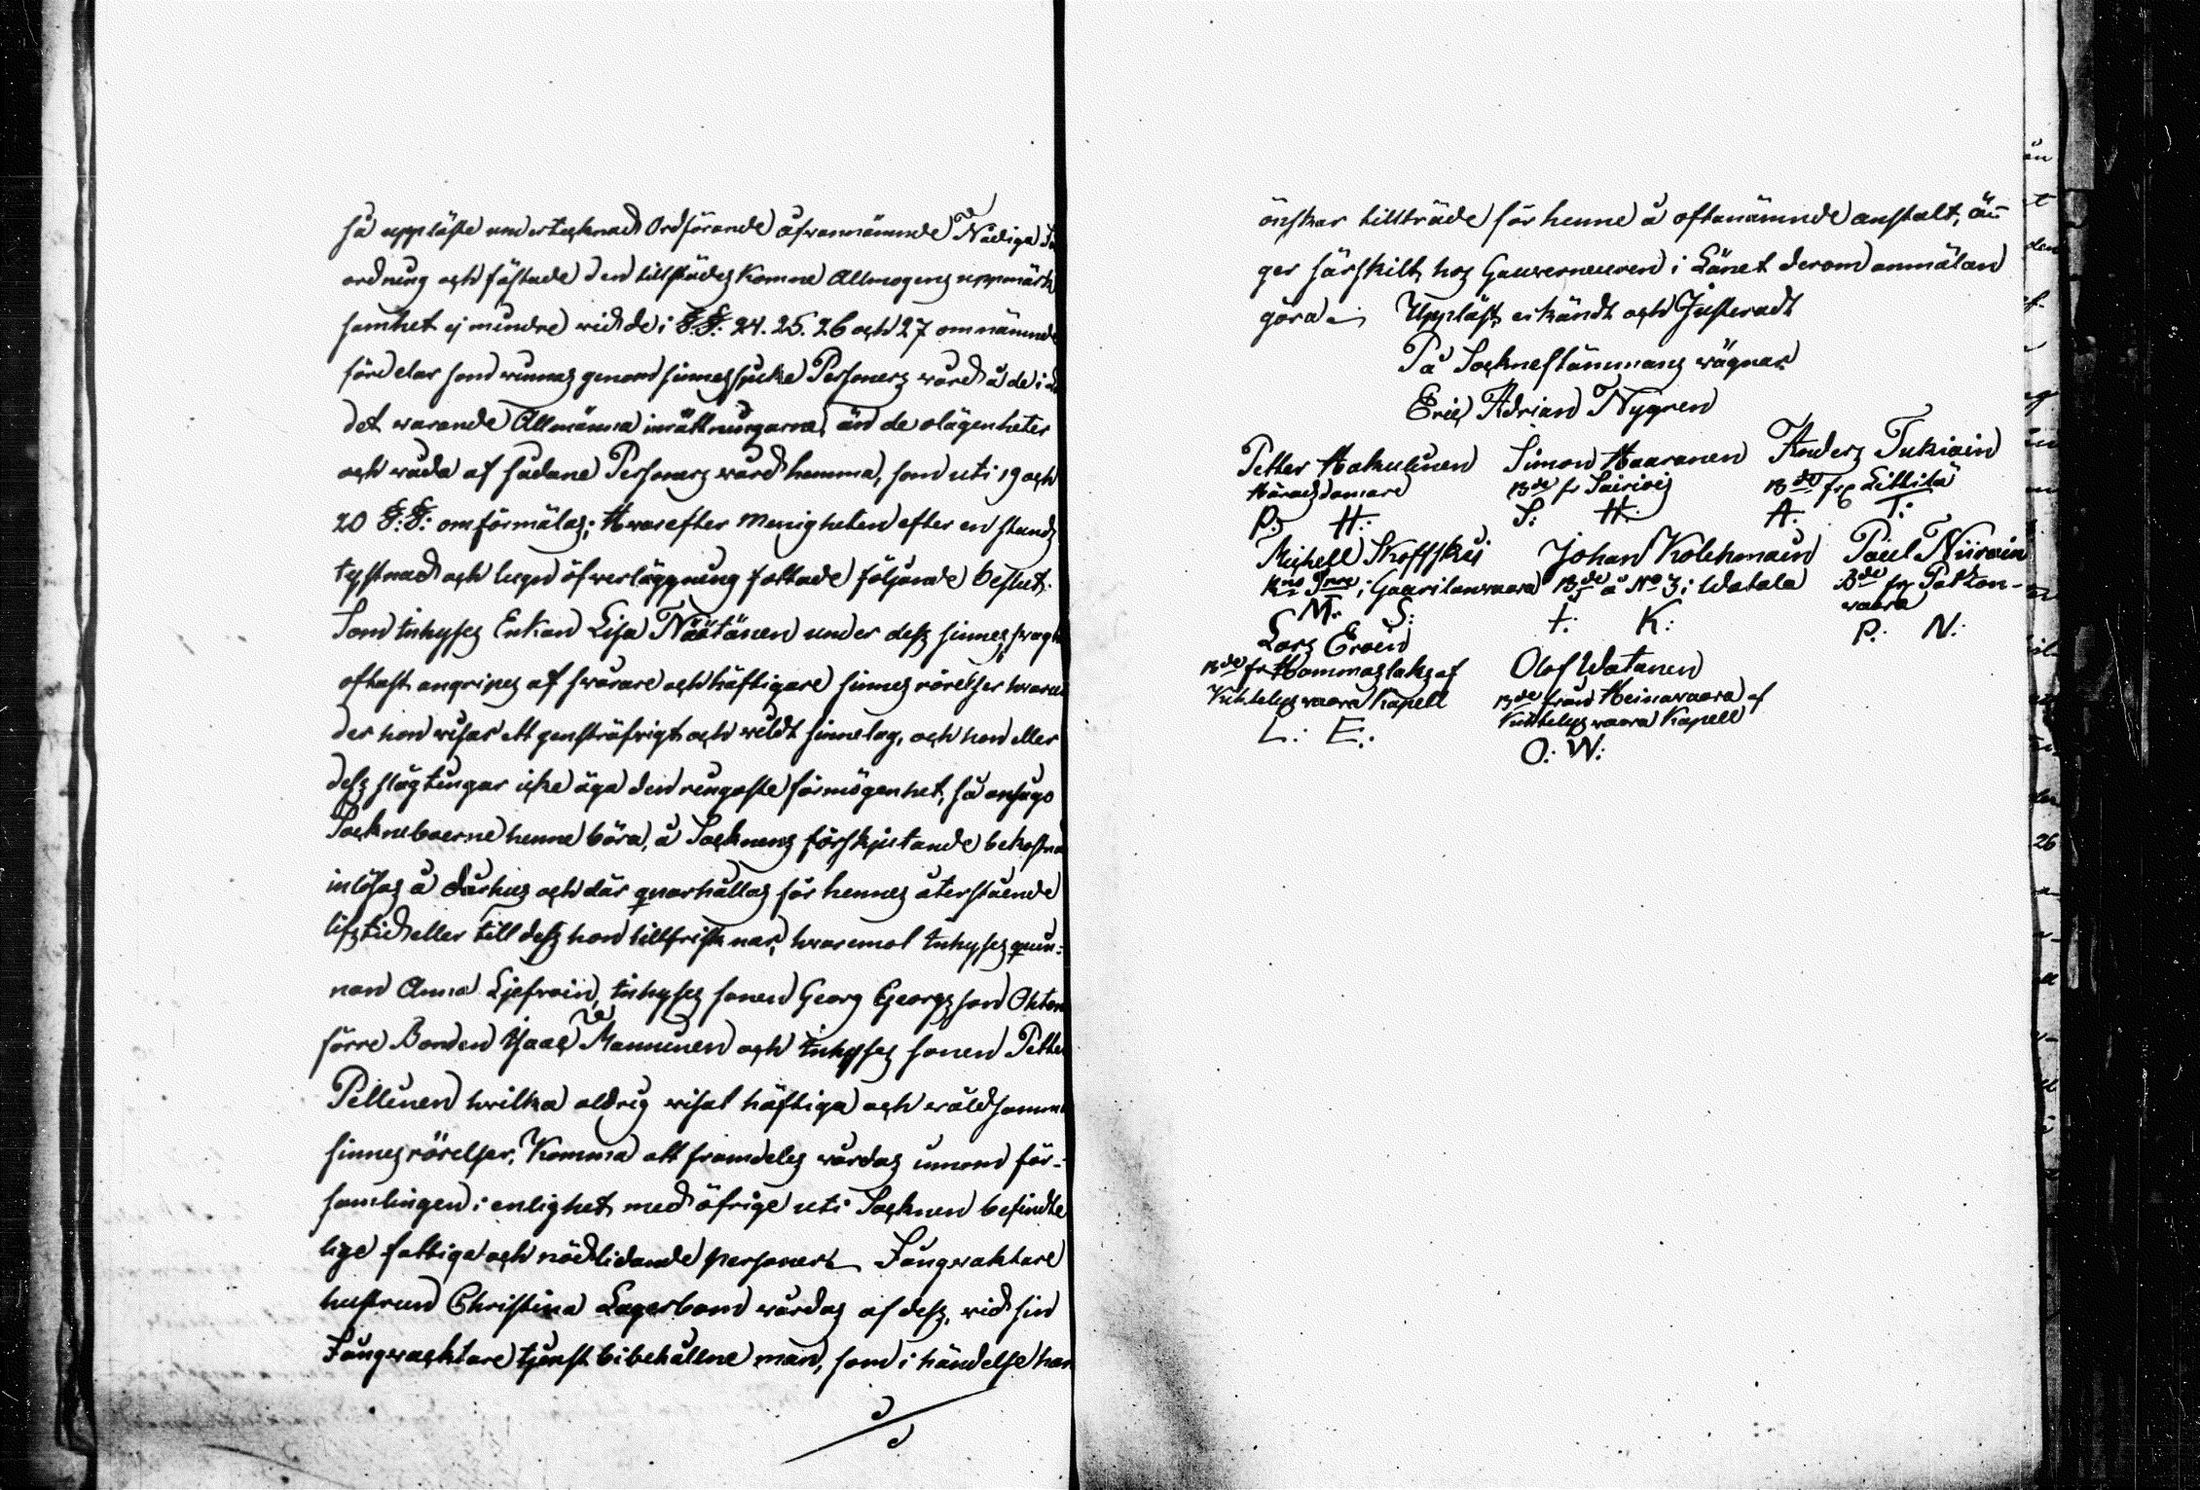 så uppläste undertecknad Ordförande ofvannämnde Nådiga
ordning och fästade den tillstädes komne Allmogens uppmärk
samhet ej mindre wid de i §.§: 24. 25. 26 och 27 omnämnde
fördelar som winnes genom sinnessjuke Personers wård å de i
det warande Allmänna inrättningarne, än de olägenheter
och wåda af sådane Personers wård hemma, som uti 19 och
20 §:§: omförmälas; Hwarefter Menigheten efter en stunds
tystnad och lugn öfwerläggning fattade följande beslut:
Som Inhyses Enkan Lisa Näätänen under dess sinnesswagh
oftast angripes af swårare och häftigare sinnes rörelser hwarun
der hon wisar ett gensträfvigt och wildt sinnelag, och hon eller
dess slägtingar icke äga den ringaste förmögenhet, så ansågo
Sockneboerne henne böra, å Socknens förskjutande bekostna
inlösas å dårhus och där qwarhållas för hennes återstående
lifstid eller till dess hon tillfrisknar, hwaremot Inhyses qwin:
nan Anna Ljefvoin, Inhyses sonen Georg Georgsson Okton
förre Bonden Isaac Mannunen och Inhyses sonen Petter
Pellinen hwilka aldrig wisat häftiga och wåldsamma
sinnesrörelser, Komma att framdeles wårdas inom för-
samlingen i enlighet med öfrige uti Socknen befindte
lige fattiga och nödlidande personer. Fångvaktare
hustrun Christina Lagerbom wårdas af dess, wid sin
Fångwacktare tjenst bibehållne man, som i händelse han
önskar tillträde för henne å oftanämnde anstalt, äu-
ger särskilt hos Gouverneuren i Länet derom anmälan
göra. Uppläst, erkändt och Justeradt
På Socknestämmans wägnar
Eric Adrian Nygren
Petter Hakulinen Simon Haaranen Anders Tukiain
Häradsdomare Bde fr Sairiois Bde frp Littilä
P: H: S: H: A: T:
Michell Skoffskii Johan Kolehmain Paul Niirain
i Gaarilanwaara Bde å No 3 i Watala Bde fr Patzon-
waara
M: S: I: K: P: N:
Lars Eroin Olof Watanen
Bde fr Hammaslaks af Bde från Heinawaara af
Kiihtelyswaara Kapell Kiihtelyswaara Kapell
L: E: O: W: